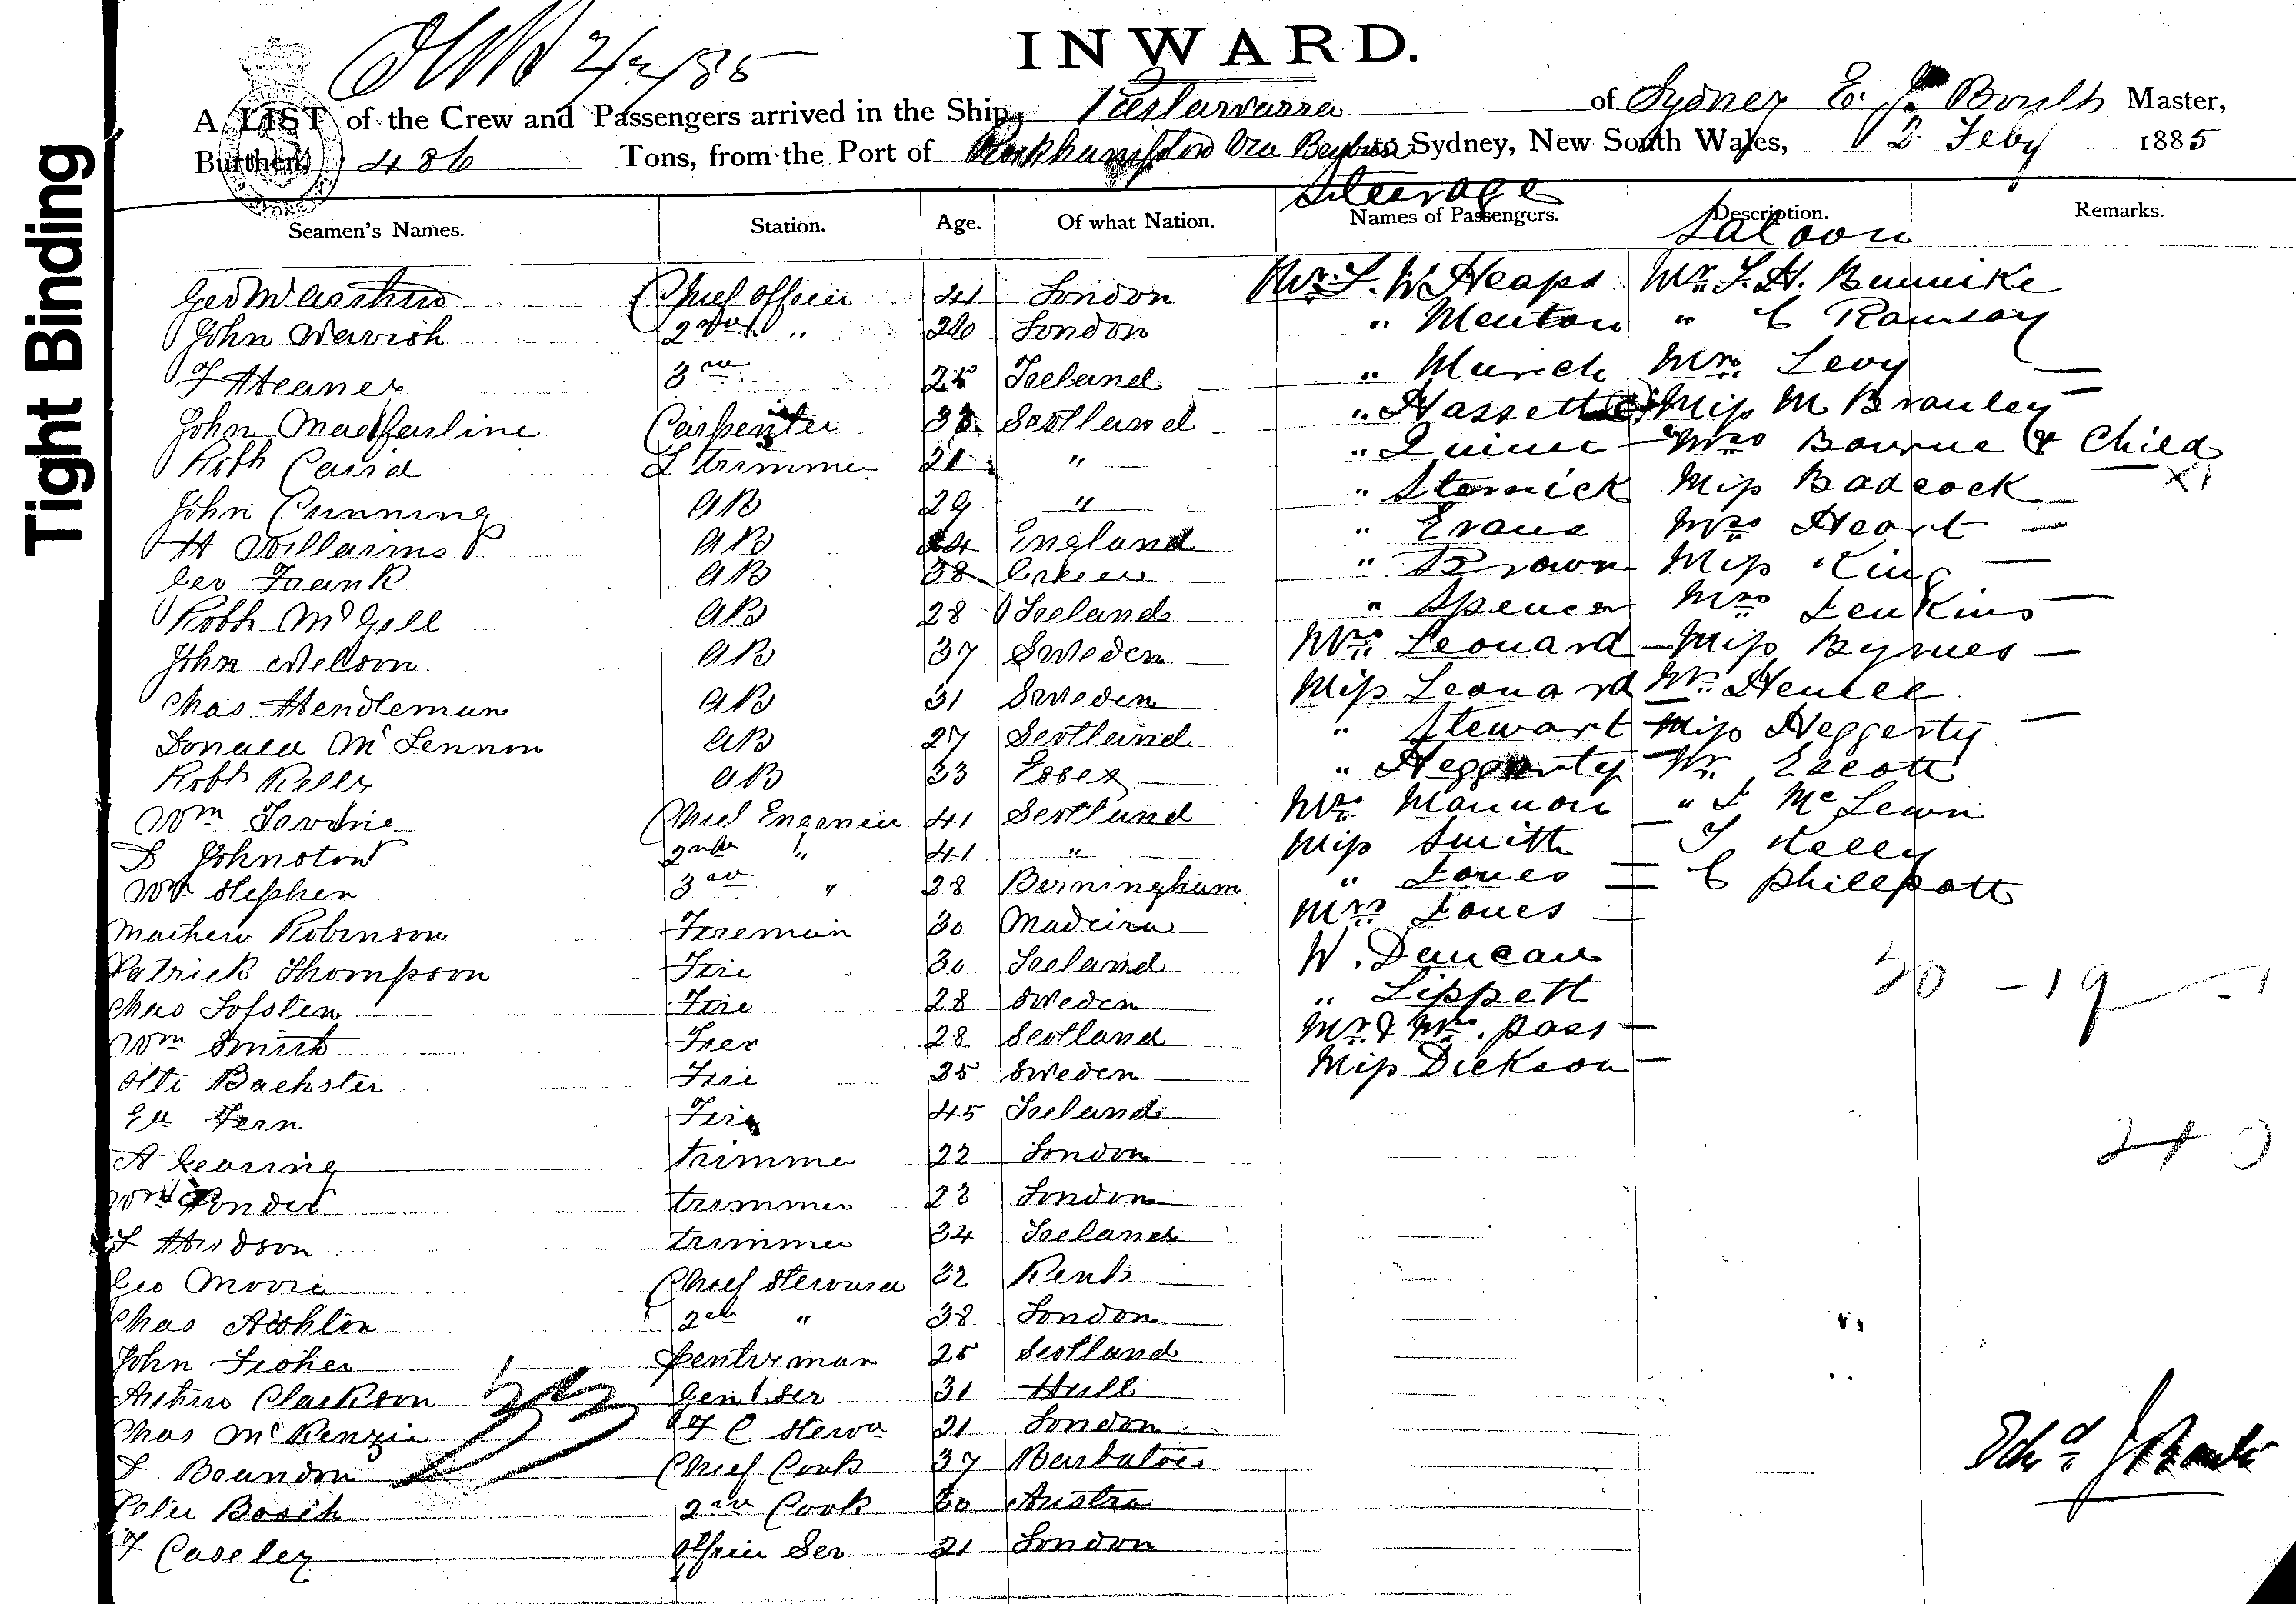 INWARD.
2/2/85
A LIST of the Crew and Passengers arrived in the Ship of Sydney E. J. Boult Master,
Burthen, 486 Tons, from the Port of Rockhampton Via to Sydney, New South Wales, 2 Feby 1885
Tight Binding
Steerage
Seamen's Names. Station. Age. Of what Nation. Names of Passengers. Description. Remarks.
Saloon
Geo McArthur Chief Officer 41 London Mr. L. W Heaps Mr. L. H. Bunnike
John Warrish 2nd " 26 London " Menton " C Ramsay
3rd 25 Ireland " Murch Mrs. Levy —
John Macfarline Carpenter 33 Scotland " Hassett Miss M Branley —
Robt Caird L trimmer 21 " " Quinn Mrs Bourne & Child
John Cunning AB 29 " " Sternick Miss Badcock X1
H Willaims AB 24 England " Evans Mrs Heart —
Geo Frank AB 38 " Brown Miss King —
Robt McGill AB 28 Ireland " Spencer Mrs Jenkins —
John Nelson AB 37 Sweden Mrs Leonard — Miss Byrnes —
Chas Hendleman AB 31 Sweden Miss Leonard Mr.
Donald McLennon AB 27 Scotland " Stewart — Miss Heggerty —
Robt Kelly AB 33 Essex " Heggerty — Mr. Escott
Wm Jardine Chief Engineer 41 Scotland Mrs Mannon " J McLewn
D Johnston 2nd " 41 " Miss Smith — J Kelly
Wm Stephen 3rd " 28 Berningham " Jones — C Phillpott
Mathew Robinson Fireman 30 Madeira Mrs Jones —
Patrick Thompson Fire 30 Ireland W. Duncan
Chas Lofsten Fire 28 Sweden " Lippett 20 — 19 — 1
Wm Smith Fire 28 Scotland Mr & Mrs. Pass —
Otto Bachster Fire 35 Sweden Miss Dickson —
Ed Fern Fire 45 Ireland
A Gearing trimmer 22 London
Wm Ponder trimmer 22 London
J Hudson trimmer 34 Ireland
Geo Moore Chief Steward 32 Kent
Chas Ashlin 2nd " 38 London
John Fisher Pentryman 25 Scotland
Arthur Clarkson Gen l Ser 31 Hull
Chas McKenzie F C Stewd 21 London
J Brandon Chief Cook 37 Barbatoes
Peter Bosch 2nd Cook 30 Austra
F Caseley Officer Ser 21 London